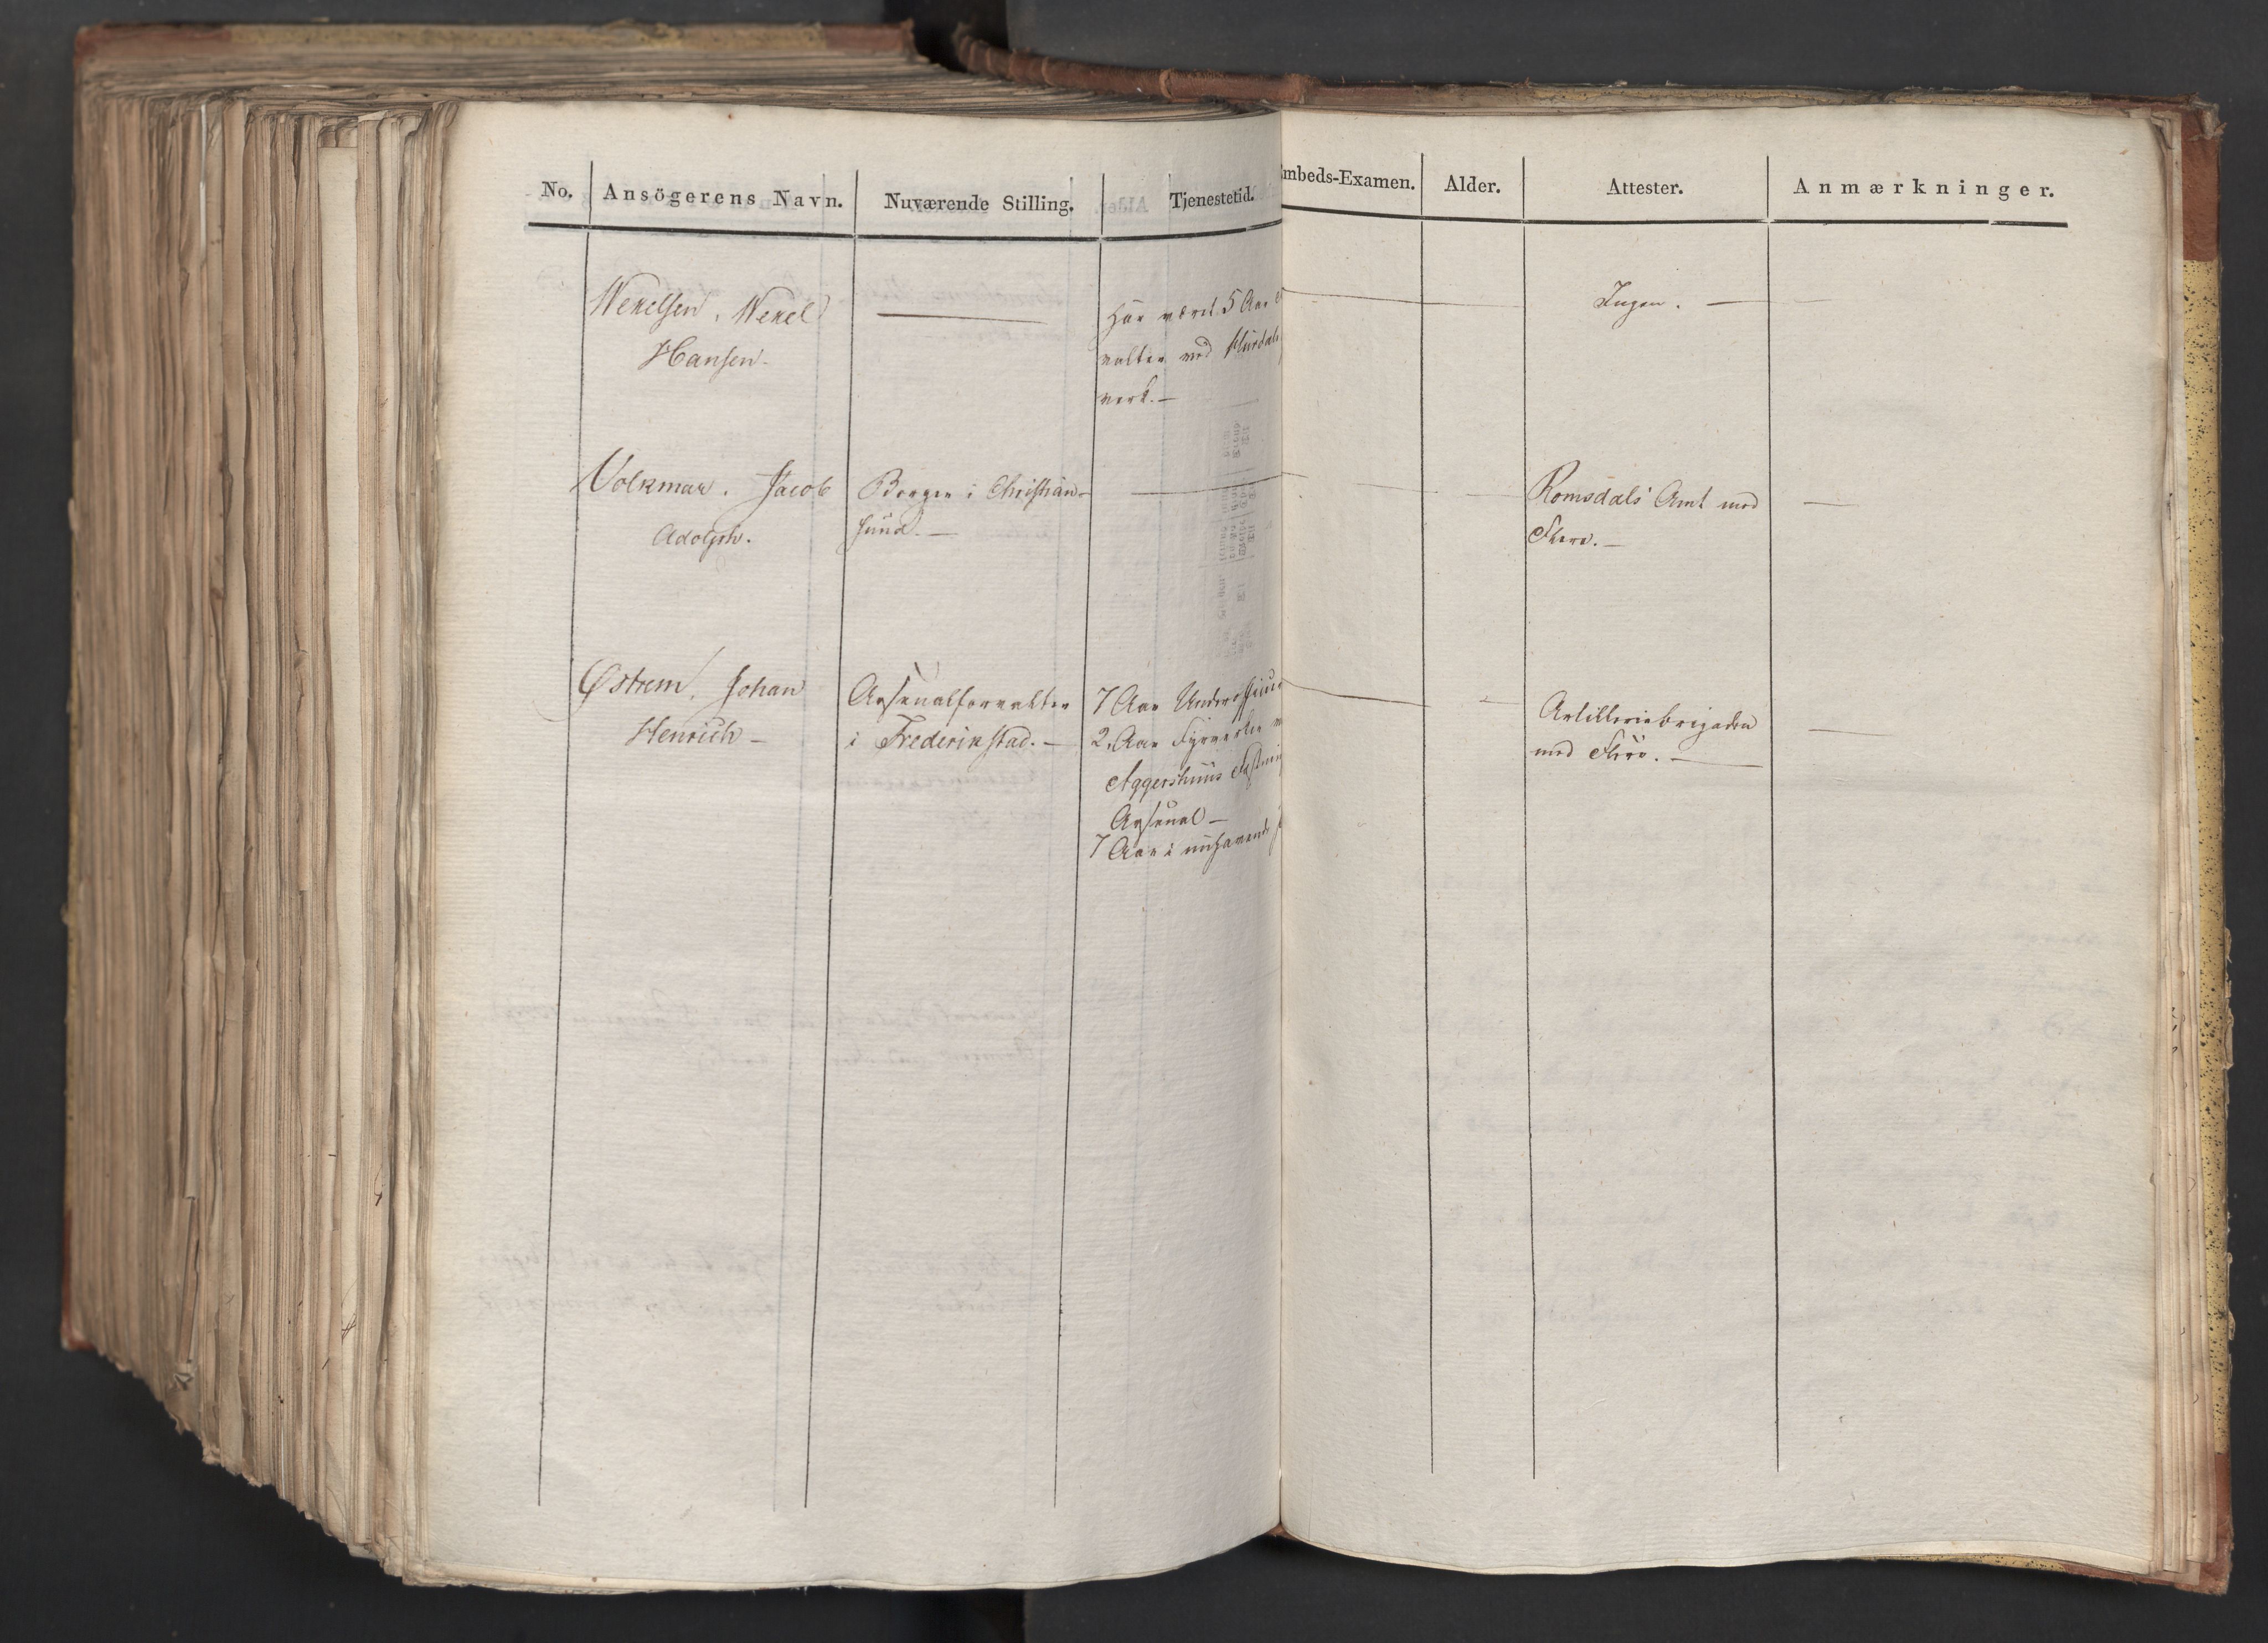 No. Ansögerens Navn. Nuværende Stilling. Tjenestetid. Embeds-Examen. Alder. Attester. Anmærkninger.
Wexelsen, Wexel
Hansen.
Har været 5 Aar
valter ved Hurdals
verk. —
Ingen. —
Volkmar, Jacob
Adolph.
Borger i Christian-
sund. —
Romsdals Amt med
Flere. —
Østrem, Johan
Henrich —
Arsenalforvalter
i Frederikstad. —
7 Aar Underofficeer
2 Aar Fyrverker
Aggershuus Fæstning
Arsenal —
7 Aar i nuhavende
Artilleriebrigaden
med Flere. —